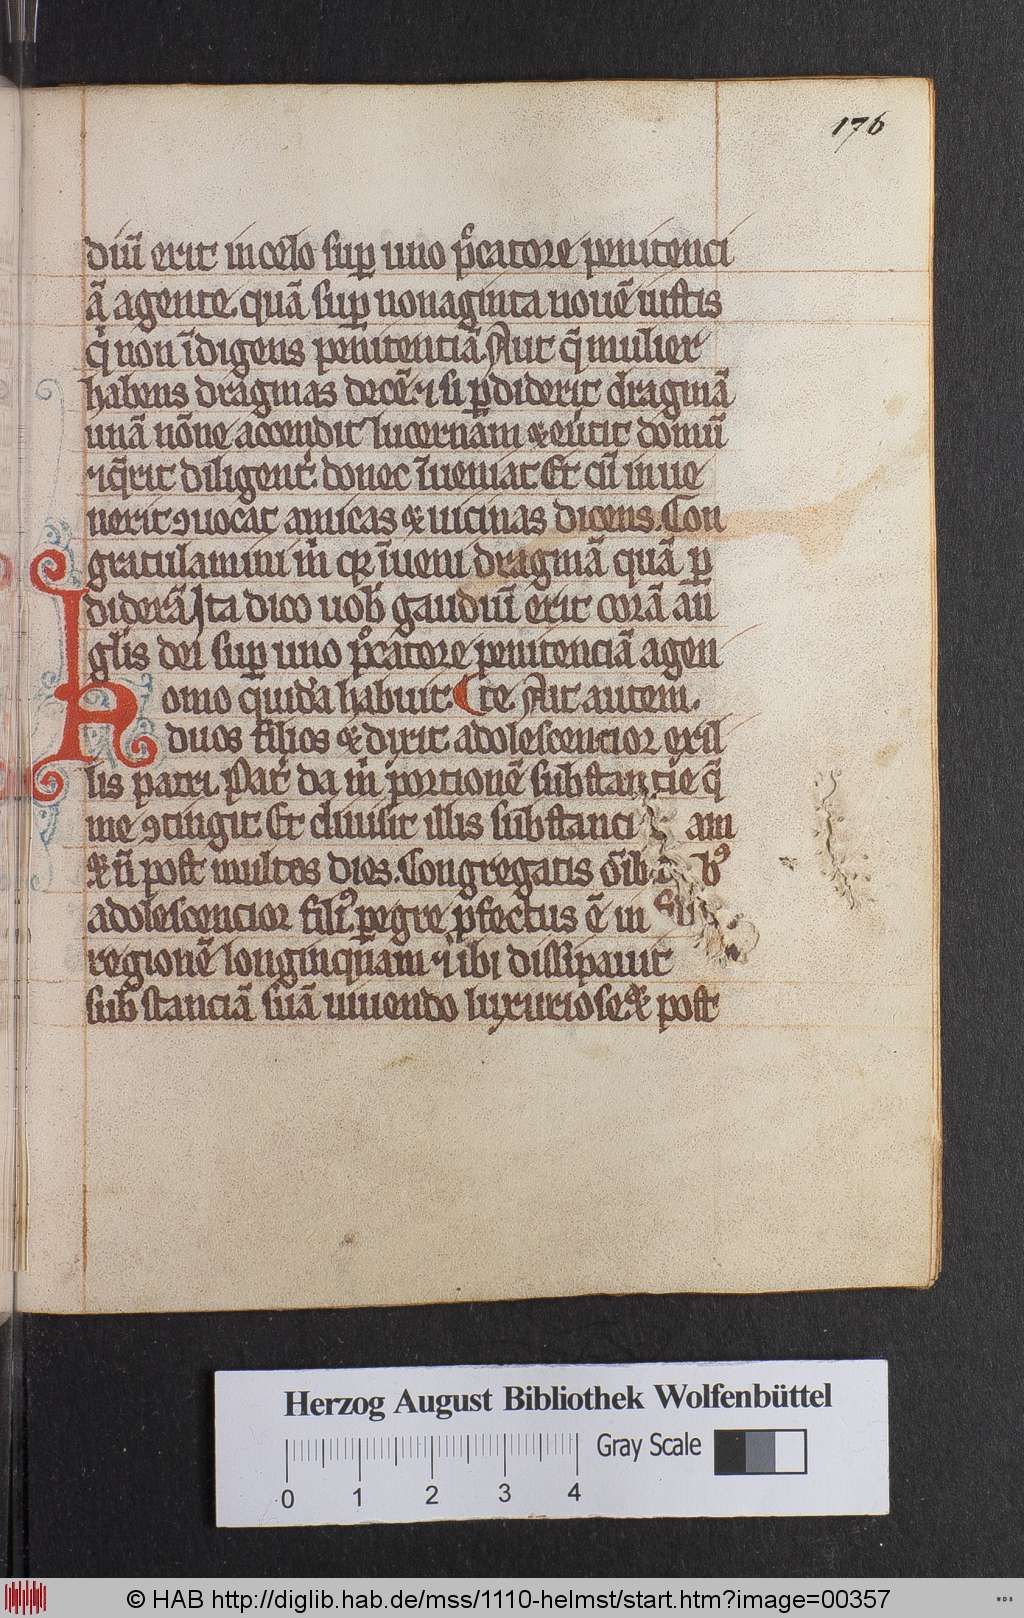 176
diū erit in celo sup uno pͨcatore penitenci
ā agente. quā sup nonaginta nouē iustis
qͥ non īdigens penitenciā. Aut q̄ mulier
habens dragmas decē. ⁊ si ꝑdiderit dragmā
unā nōne accendit lucernam & eu̾tit domū
⁊ q̄rit diligent̾ donec īueniat. Et cū inue
nerit ꝯuocat amicas & uicinas dicens. Con
gratulamini m̄ qꝛ īueni dragmā quā ꝑ
diderā. Ita dico uob̄ gaudiū erit corā an
gl̄is dei sup uno pͨcatore penitenciā agen
omo quidā habuit te. Ait autem.
duos filios & dixit adolescentior ex il
lis patri. Pat̾ da m̄ portionē substantie q̄
me ꝯtingit. Et diuisit illis substanci am
& n̄ post multos dies. Congregatis
adolescencior filiꝰ pegre ꝓfectus ē in
regionē longinquam ⁊ ibi dissipauit
substanciā suā uiuendo luxuriose. & post
Herzog August Bibliothek Wolfenbüttel
Gray Scale
0 1 2 3 4
© HAB http://diglib.hab.de/mss/1110-helmst/start.htm?image=00357